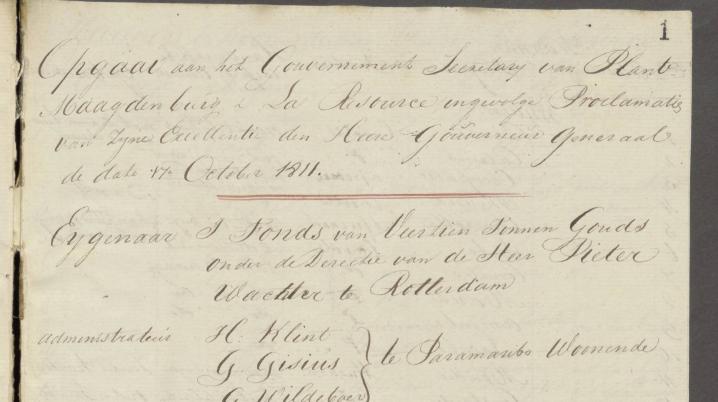 1
Opgaaf aan het Gouvernements Secretary van Plant
Maagdenburg & La Resource ingevolge Proclamatie
van Zyne Excellentie den Heere Gouverneur Generaal
de dato 17 October 1811.
Eygenaar 'T Fonds van Veertien Tonnen Gouds
onder de Directie van de Heer Pieter
Wachter te Rotterdam
administrateurs H: Klint
G. Gisius } te Paramaribo Woonende
G Wildeboer